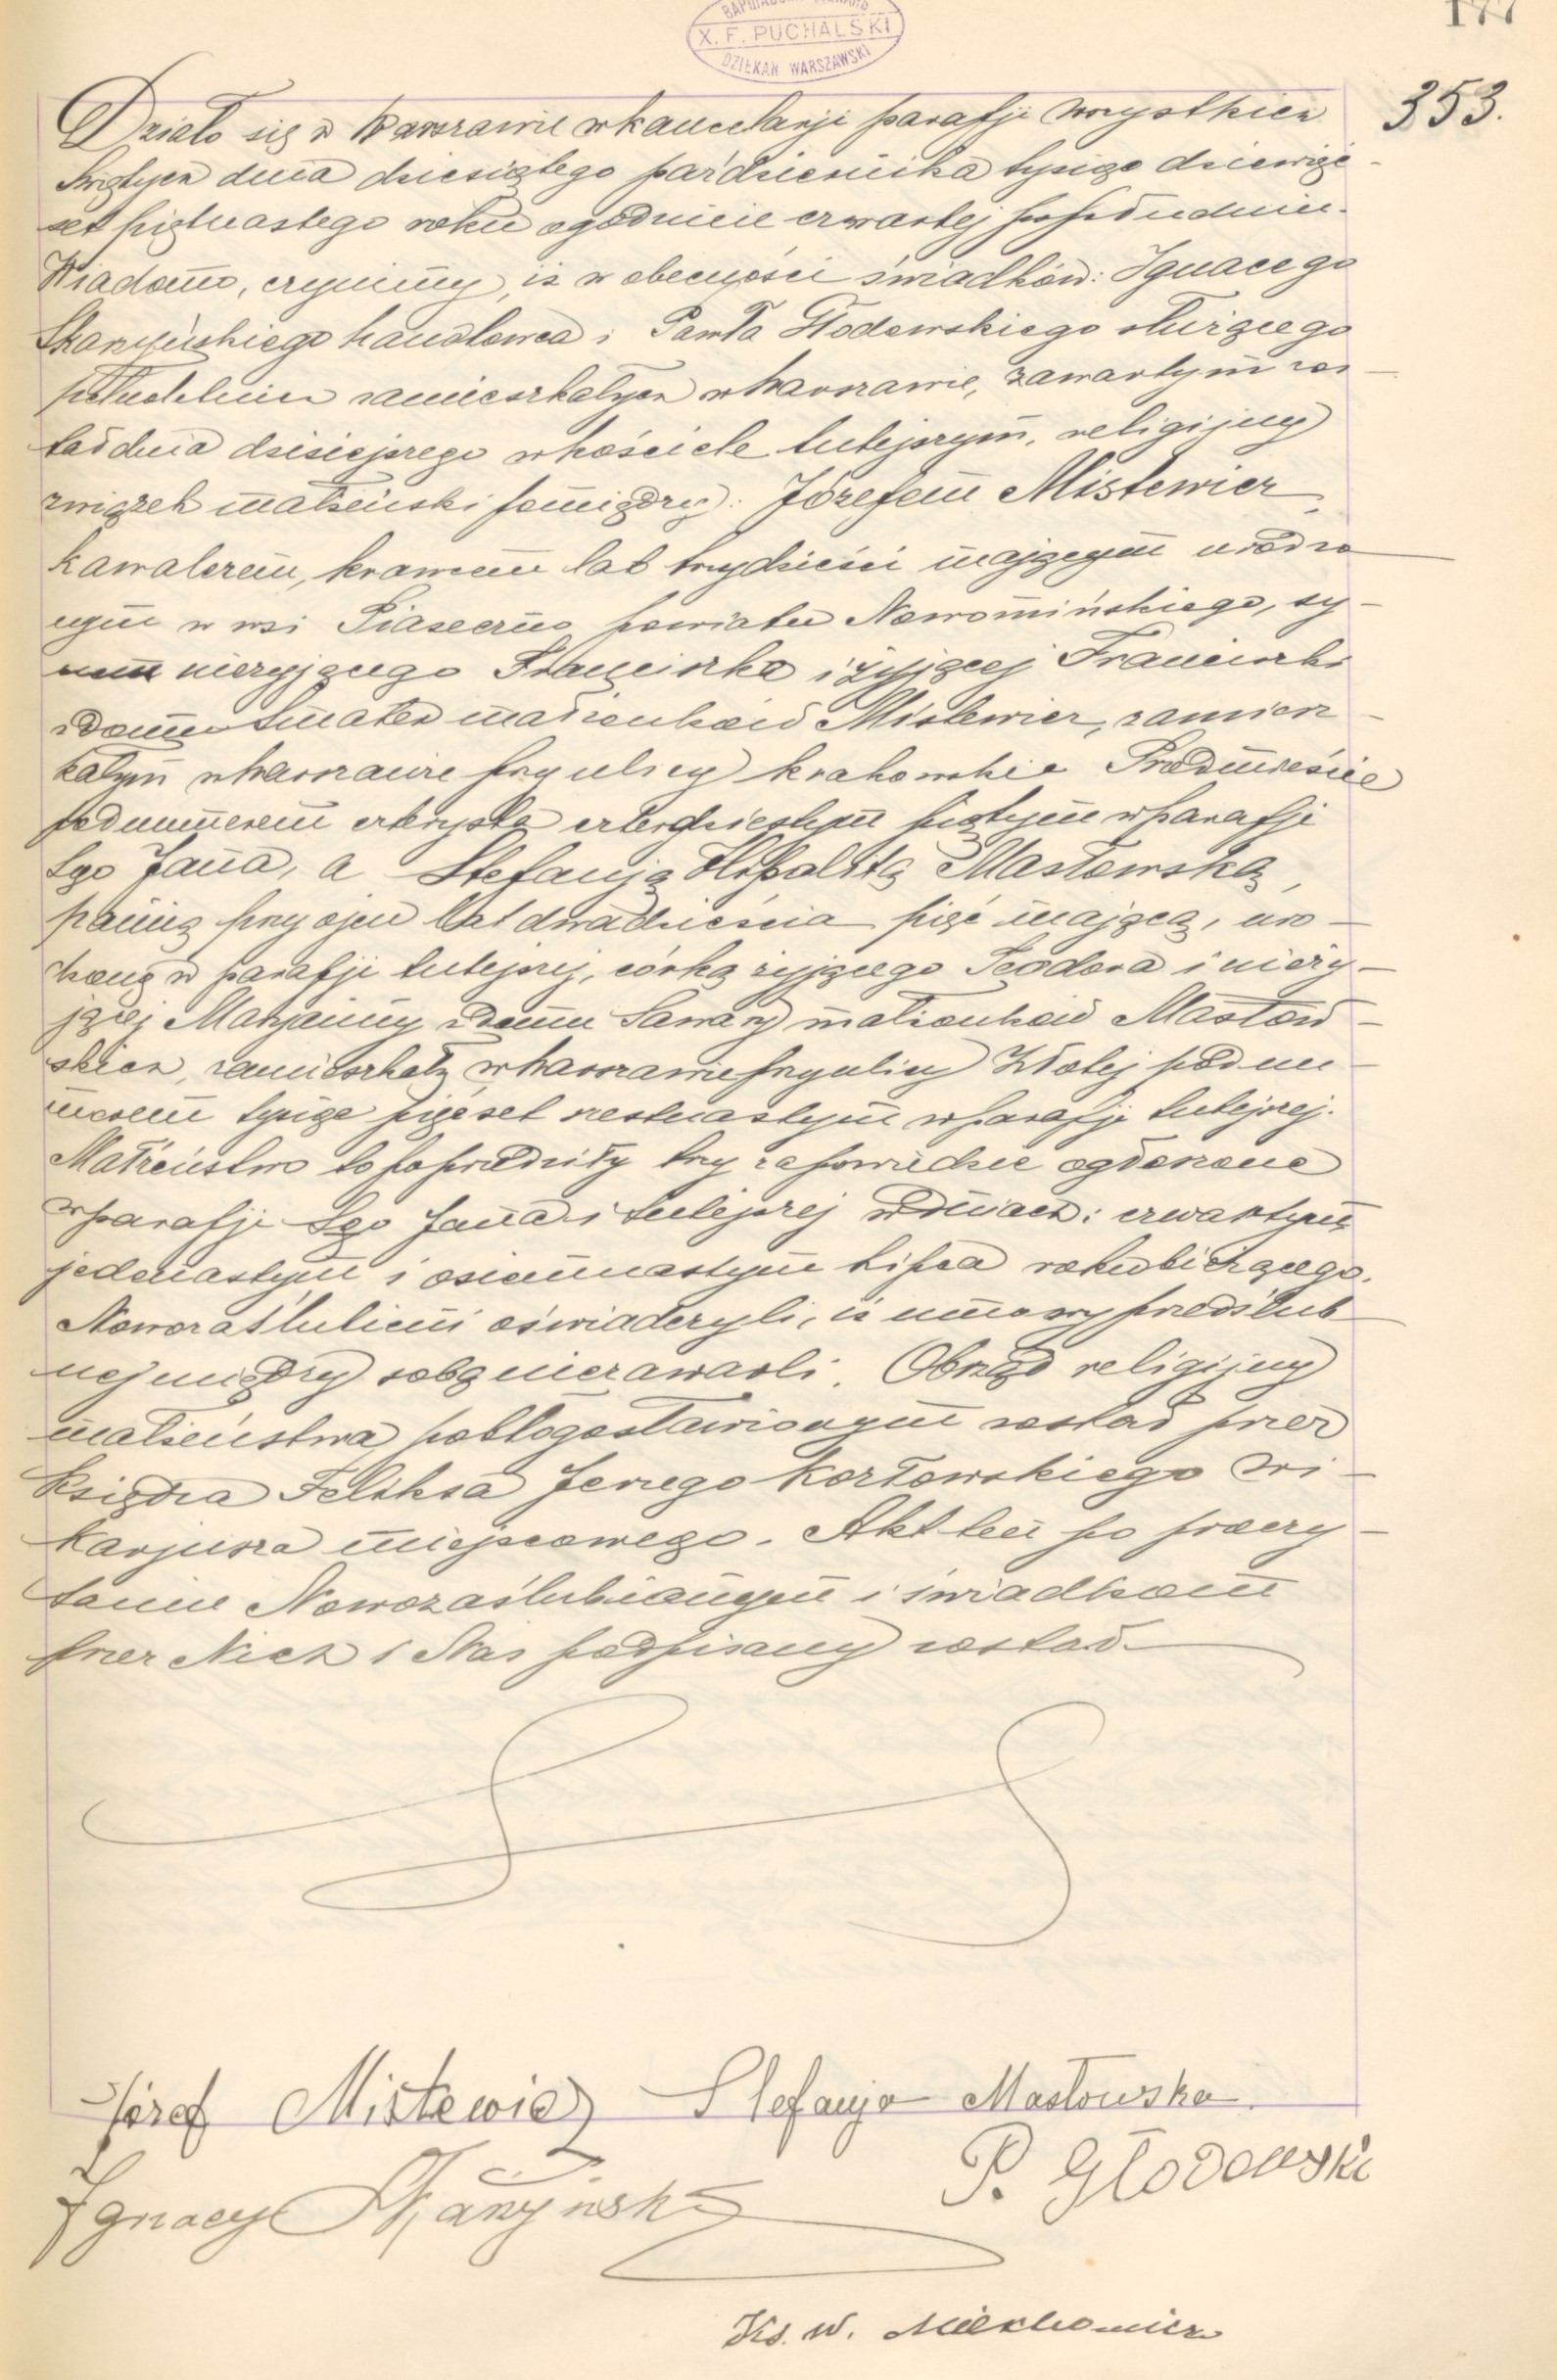 177
X. F. PUCHALSKI
DZIEKAN WARSZAWSKI
353.
Działo się w Warszawie w kancelarji parafji Wszystkich
Świętych dnia dziesiątego października tysiąc dziewięć-
set piętnastego roku o godzinie czwartej po południu.
Wiadomo, czynimy, iż w obecności świadków: Ignacego
Skarżyńskiego handlowca i Pawła Głodowskiego służącego
pełnoletnich zamieszkałych w Warszawie, zawartym zos-
tał dnia dzisiejszego w kościele tutejszym, religijny
związek małżeński pomiędzy: Józefem Mistewicz,
kawalerem, krawcem lat trzydzieści mającym urodzo
nym w wsi Piaseczno powiatu Nowomińskiego, sy-
nem nieżyjącego Franciszka i żyjącej Franciszki
z domu małżonków Mistewicz, zamiesz-
kałym w Warszawie przy ulicy Krakowskie Przedmieście
pod numerem czterysta czterdziestym piątym w parafji
Śgo Jana, a Stefanją Hipolitą Masłowską,
panną przy ojcu lat dwadzieścia pięć mającą, uro-
dzoną w parafji tutejszej, córką żyjącego Teodora i nieży-
jącej Marjanny z domu małżonków Masłow-
skich, zamieszkałą w Warszawie przy ulicy Złotej pod nu-
merem tysiąc pięćset szesnastym w parafji tutejszej.
Małżeństwo to poprzedziły trzy zapowiedzie ogłoszone
w parafji Śgo Jana i tutejszej w dniach: czwartym,
jedenastym i osiemnastym lipca roku bieżącego.
Nowozaślubieni oświadczyli, iż umowy przedślub
nej między sobą nie zawarli. Obrzęd religijny
małżeństwa pobłogosławionym został przez
Księdza Feliksa Jerzego Kozłowskiego Wi-
karjusza miejscowego. Akt ten po przeczy-
taniu Nowozaślubionym i świadkom
przez Nich i Nas podpisany został.
Józef Mistewicz Stefanja Masłowska.
Ignacy Skarżyński P. Głodowski
Ks. W.